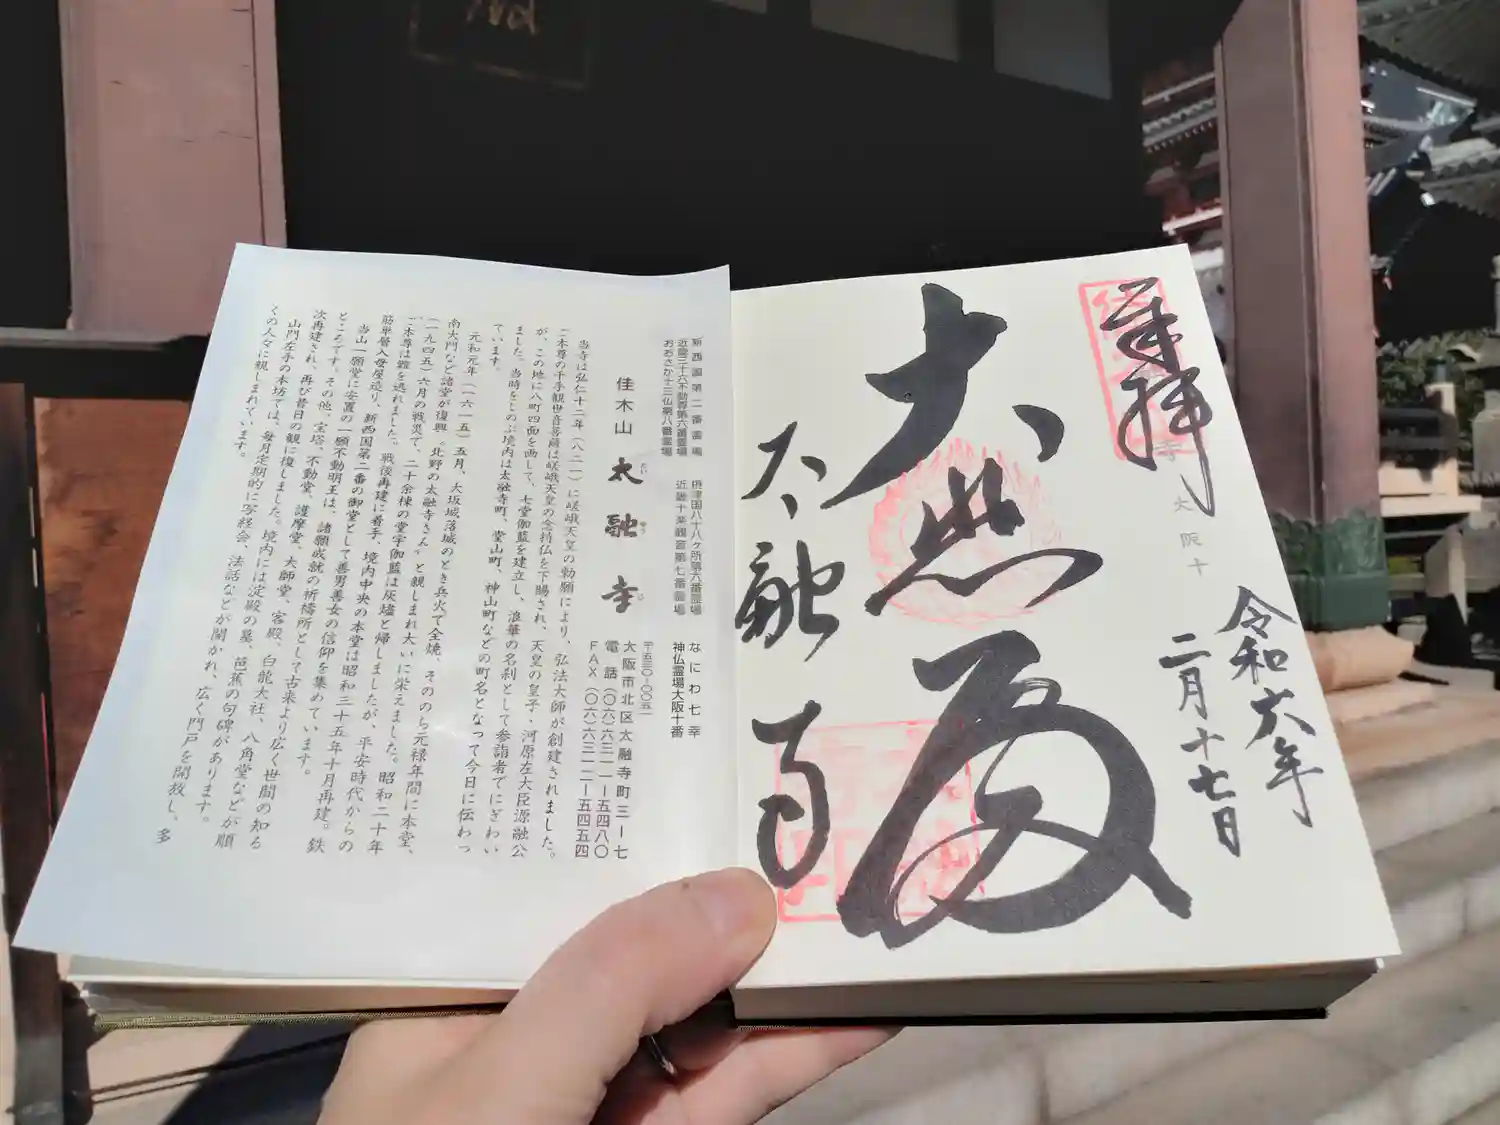 奉拝
大阪十
令和六年
二月十七日
大悲殿
太融寺
新西国第二番霊場
近畿三十六不動尊第六番霊場
おおさか十三仏第八番霊場
摂津国八十八ヶ所第六番霊場
近畿十楽観音第七番霊場
なにわ七幸
神仏霊場大阪十番
佳木山 太融寺
たい ゆう じ
〒五三〇―〇〇五一
大阪市北区太融寺町三―七
電話(〇六)六三一一―五四八〇
FAX(〇六)六三一二―五四五四
当寺は弘仁十二年(八二一)に嵯峨天皇の勅願により、弘法大師が創建されました。
ご本尊の千手観世音菩薩は嵯峨天皇の念持仏を下賜され、天皇の皇子・河原左大臣源融公
が、この地に八町四面を画して、七堂伽藍を建立し、浪華の名刹として参詣者でにぎわい
ました。当時をしのぶ境内は太融寺町、堂山町、神山町などの町名となって今日に伝わっ
ています。
元和元年(一六一五)五月、大坂城落城のとき兵火で全焼、そののち元禄年間に本堂、
南大門など諸堂が復興。〝北野の太融寺さん〟と親しまれ大いに栄えました。昭和二十年
(一九四五)六月の戦災で、二十余棟の堂宇伽藍は灰燼と帰しましたが、平安時代からの
ご本尊は難を逃れました。戦後再建に着手、境内中央の本堂は昭和三十五年十月再建。鉄
筋単層入母屋造り、新西国第二番の御堂として善男善女の信仰を集めています。
当山一願堂に安置の一願不動明王は、諸願成就の祈祷所として古来より広く世間の知る
ところです。その他、宝塔、不動堂、護摩堂、大師堂、客殿、白龍大社、八角堂などが順
次再建され、再び昔日の観に復しました。境内には淀殿の墓、芭蕉の句碑があります。
山門左手の本坊では、毎月定期的に写経会、法話などが開かれ、広く門戸を開放し、多
くの人々に親しまれています。